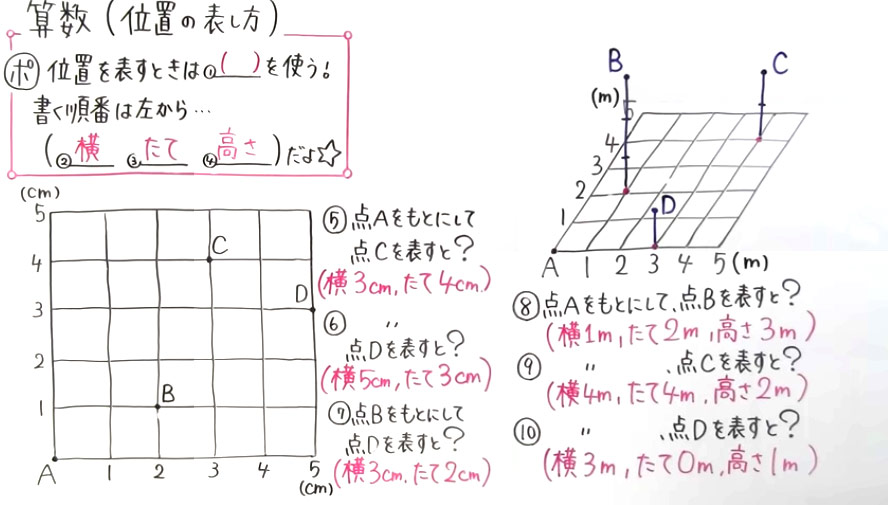 算数（位置の表し方）
ポ 位置を表すときは①( )を使う!
書く順番は左から…
(②横 ③たて ④高さ)だよ☆
(cm)
5
4
3
2
1
A 1 2 3 4 5
(cm)
C
D
B
⑤点Aをもとにして
点Cを表すと?
(横3cm,たて4cm)
⑥ 〃
点Dを表すと?
(横5cm,たて3cm)
⑦点Bをもとにして
点Dを表すと?
(横3cm,たて2cm)
B
C
(m)
5
4
3
2
1
D
A 1 2 3 4 5(m)
⑧点Aをもとにして、点Bを表すと?
(横1m,たて2m,高さ3m)
⑨ 〃 、点Cを表すと?
(横4m,たて4m,高さ2m)
⑩ 〃 、点Dを表すと?
(横3m,たて0m,高さ1m)